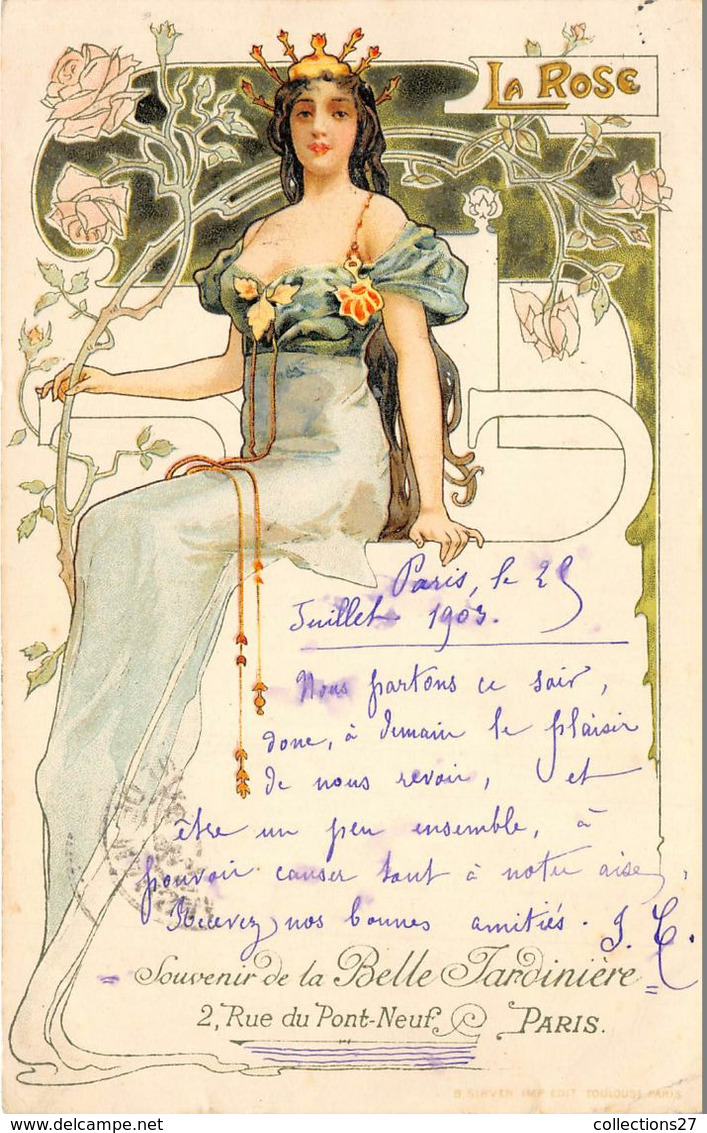 LA ROSE
Paris, le 25
Juillet 1903.
Nous partons ce soir,
donc, à demain le plaisir
de nous revoir, et
être un peu ensemble, à
pouvoir causer tout à notre aise,
Recevez nos bonnes amitiés.
Souvenir de la Belle Jardinière
2, Rue du Pont-Neuf PARIS.
B. SIRVEN IMP. EDIT. TOULOUSE-PARIS
collections27